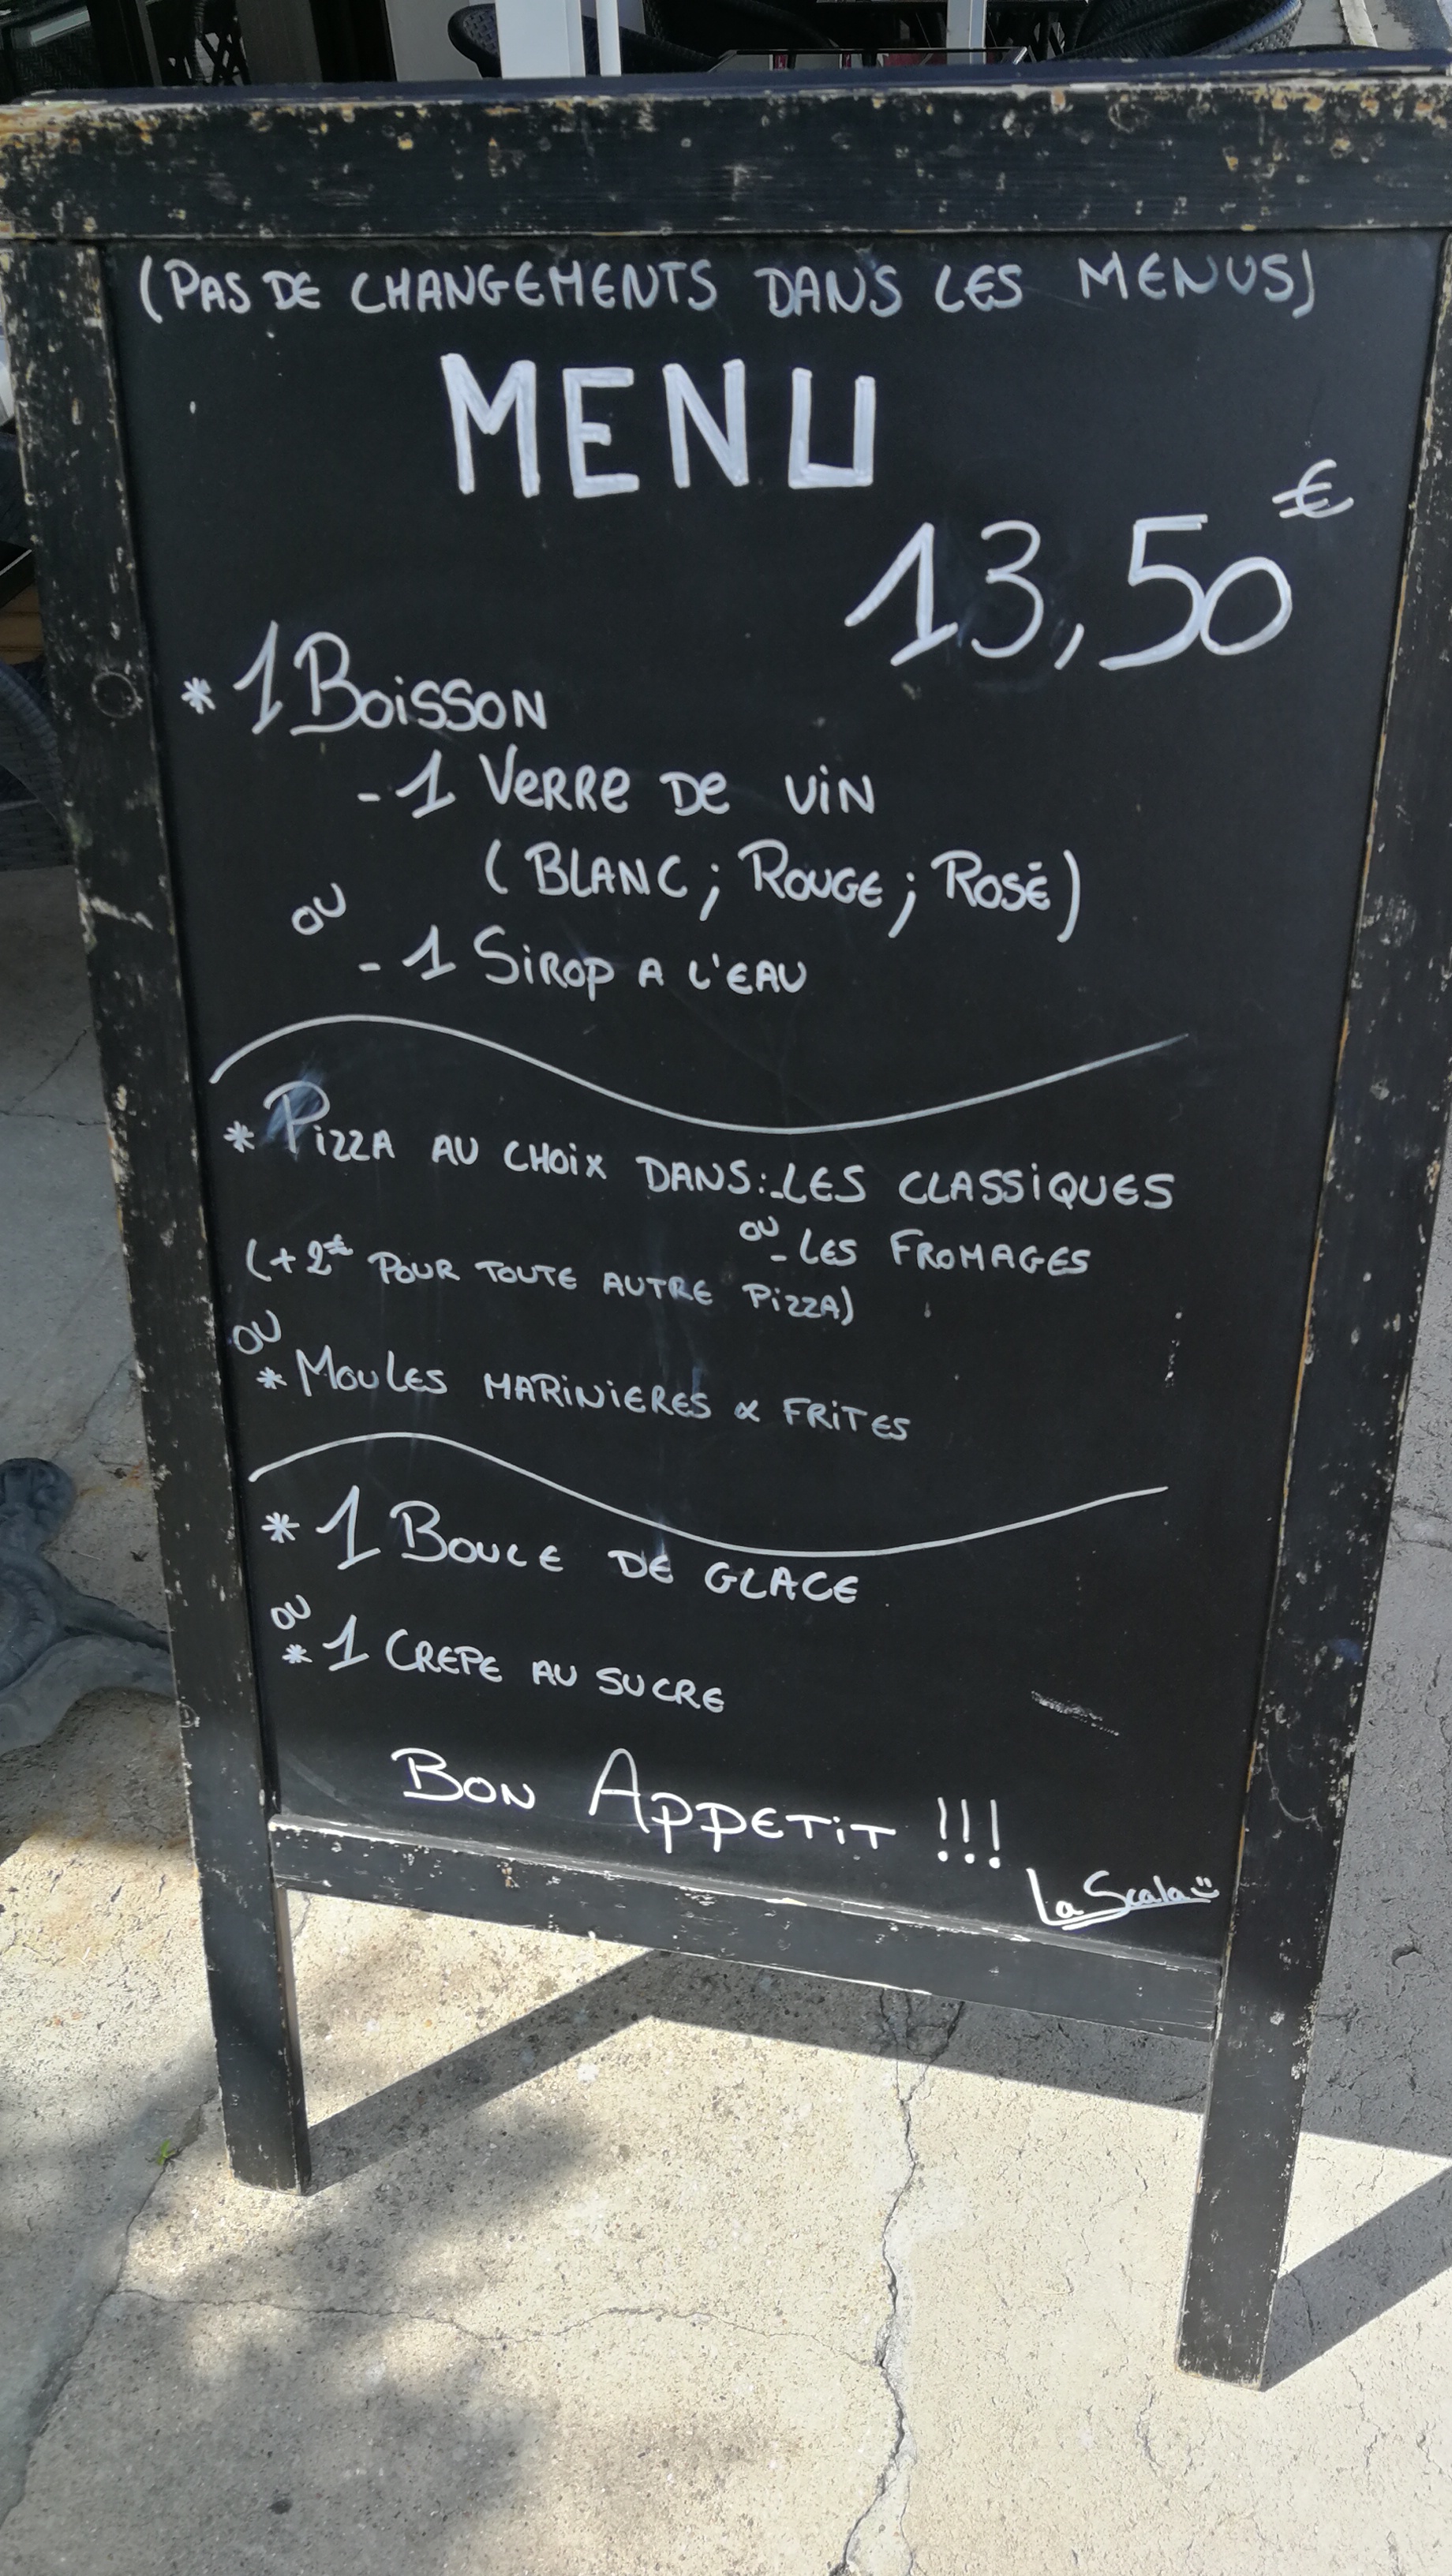 (PAS DE CHANGEMENTS DANS LES MENUS)
MENU
13,50€
* 1 BOISSON
- 1 VERRE DE VIN
(BLANC ; ROUGE ; ROSÉ)
OU
- 1 SIROP A L'EAU
* PIZZA AU CHOIX DANS : - LES CLASSIQUES
OU - LES FROMAGES
(+2€ POUR TOUTE AUTRE PIZZA)
OU
* MOULES MARINIERES & FRITES
* 1 BOULE DE GLACE
OU
* 1 CREPE AU SUCRE
BON APPETIT !!!
La Scala